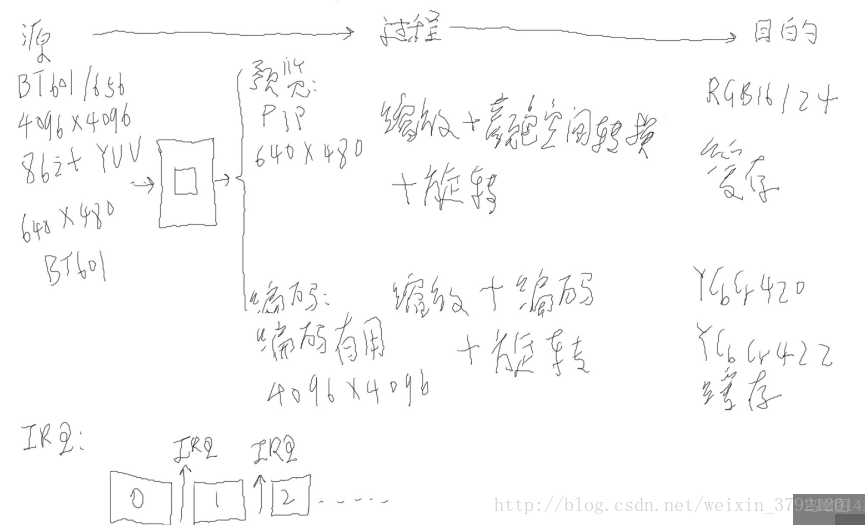 源 过程 目的
BT601/656
4096×4096
8bit YUV
640×480
BT601
预览:
PIP
640×480
缩放+颜色空间转换
+旋转
RGB16/24
缓存
编码:
编码有用
4096×4096
缩放+编码
+旋转
YCbCr420
YCbCr422
缓存
IRQ:
IRQ IRQ
0 1 2 ......
http://blog.csdn.net/weixin_37921201